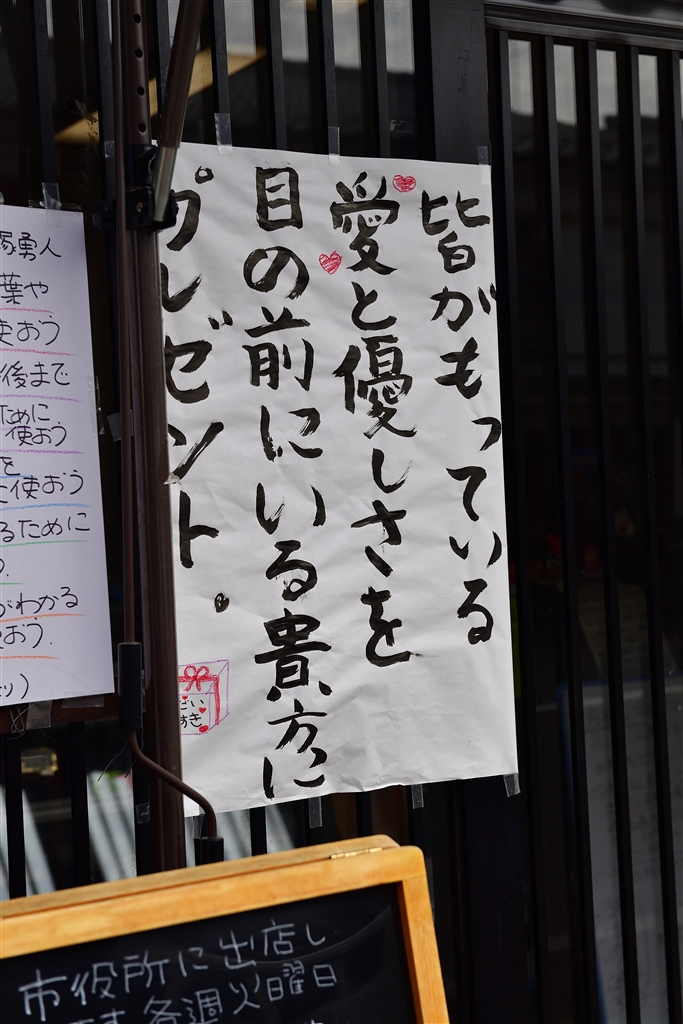 皆がもっている
愛と優しさを
目の前にいる貴方に
プレゼント。
すき
勇人
葉や
使おう
後まで
ために
使おう
を
使おう
るために
がわかる
おう.
市役所に出店し
各週火曜日